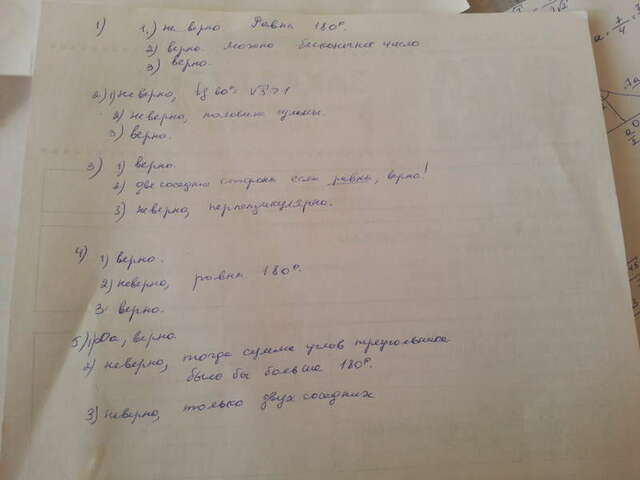 1) 1.) не верно. Равна 180°.
2) верно. можно бесконечное число
3) верно.
2.) 1) неверно, tg 60° = √3 > 1
2) неверно, половине суммы.
3) верно.
3) 1) верно.
2) две соседние стороны если равны, верно!
3) неверно, перпендикулярно.
4) 1) верно.
2) неверно, равны 180°.
3) верно.
5) 1) Да, верно.
2) неверно, тогда сумма углов треугольника
было бы больше 180°.
3) неверно, только двух соседних